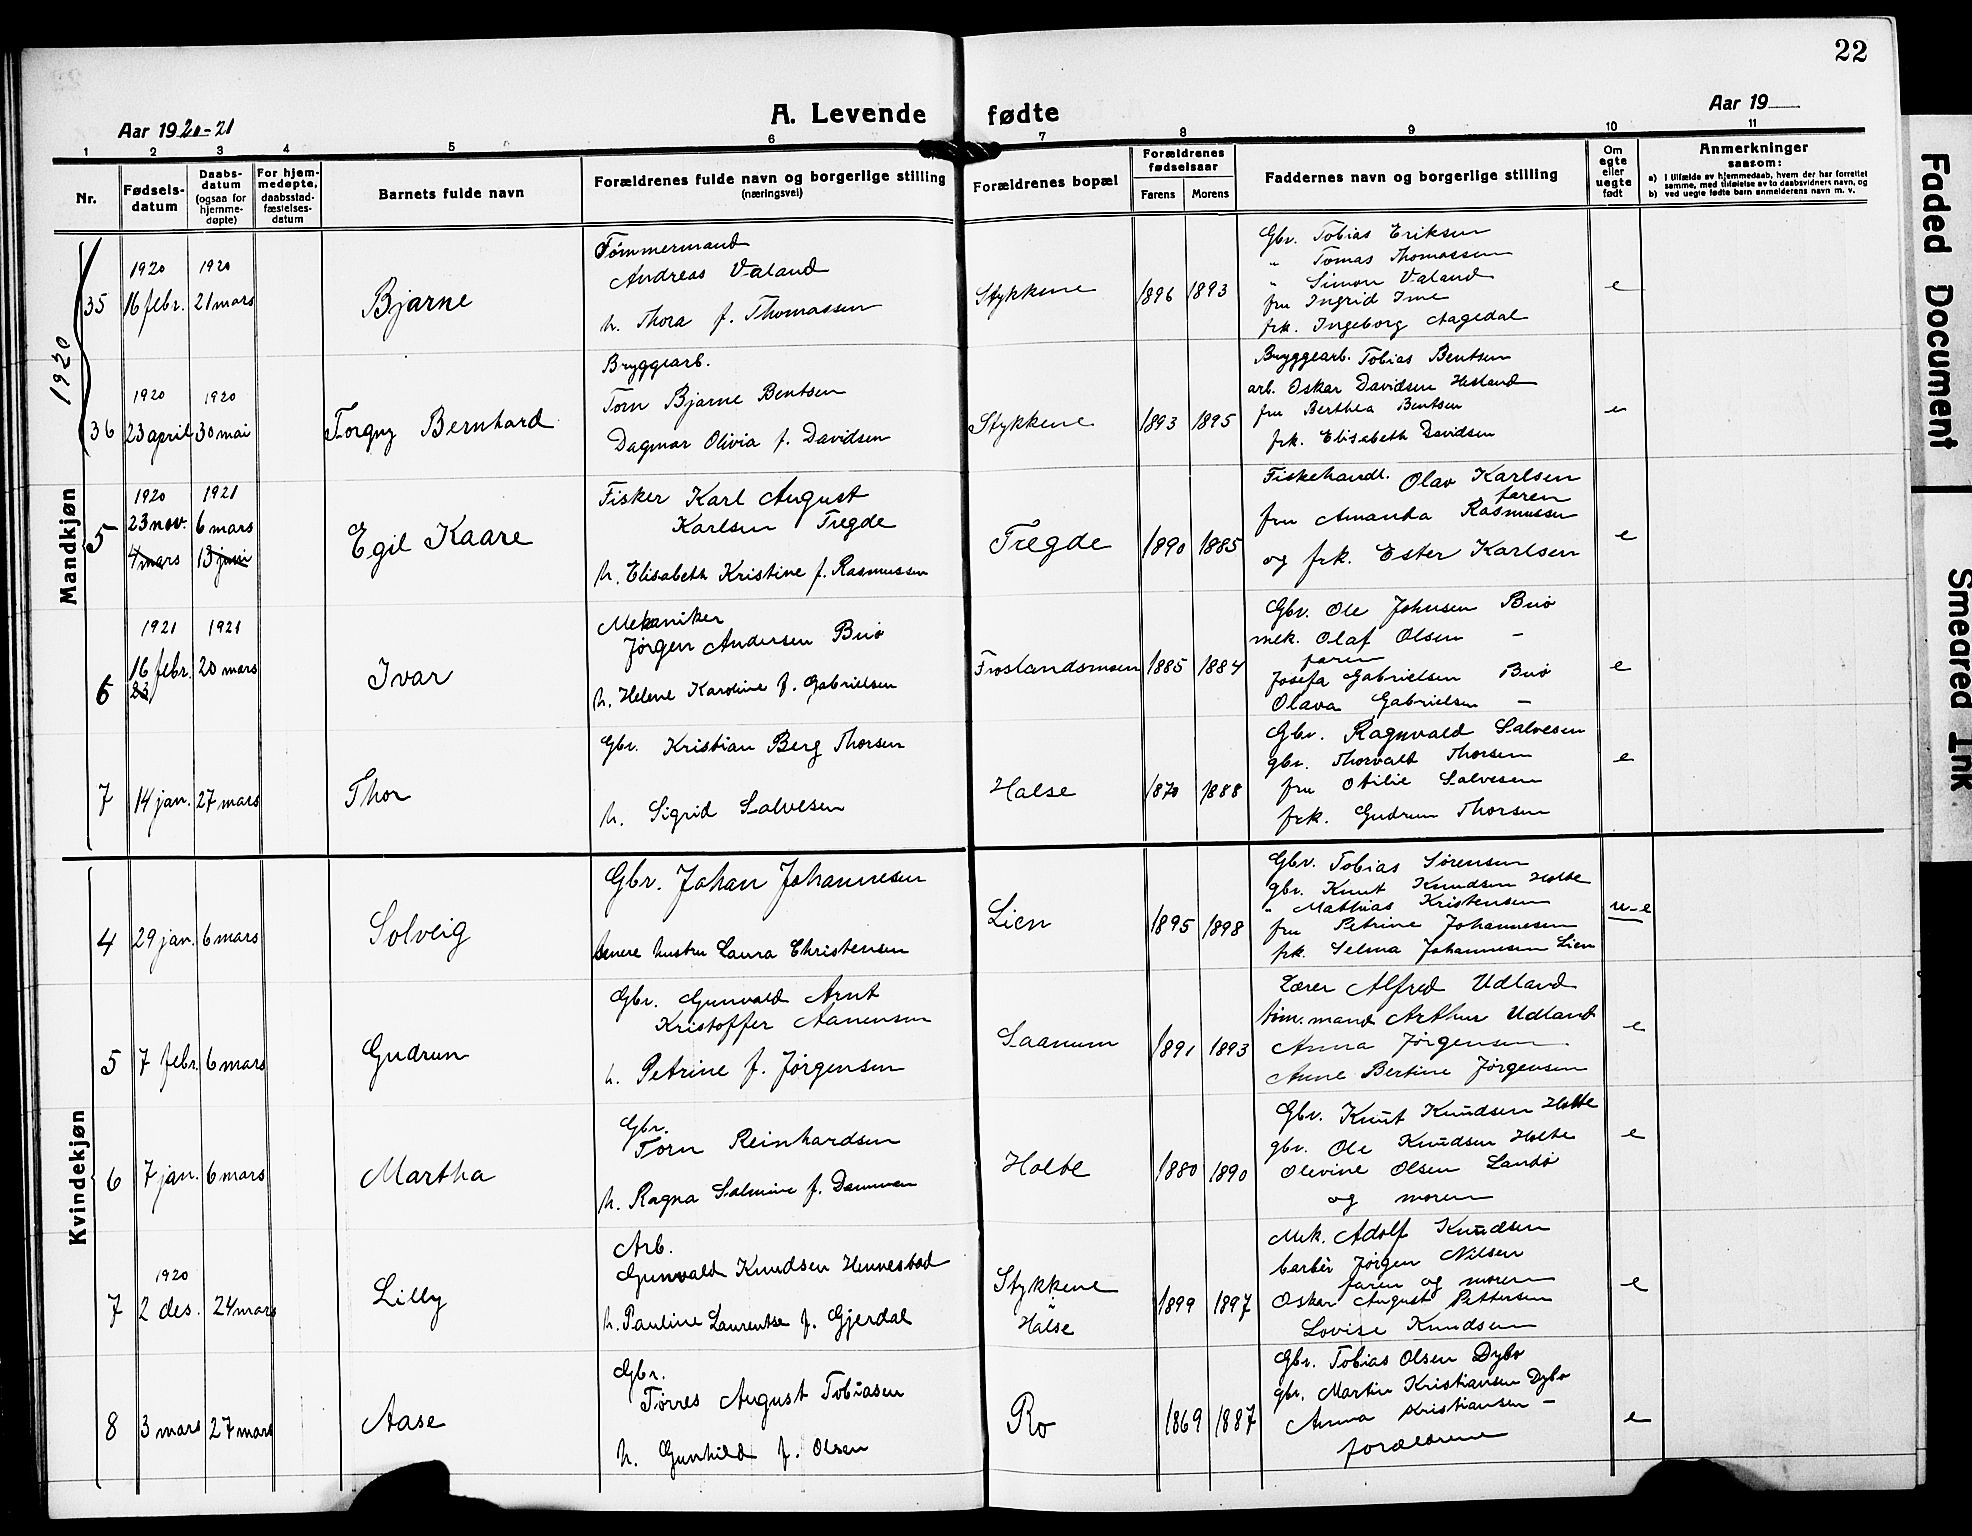 22
A. Levende fødte
Aar 1920-21
Aar 19
1 2 3 4 5 6 7 8 9 10 11
Nr.
Fødsels-
datum
Daabs-
datum
(ogsaa for
hjemme-
døpte)
For hjem-
medøpte,
daabsstad-
fæstelses-
datum
Barnets fulde navn
Forældrenes fulde navn og borgerlige stilling
(næringsvei)
Forældrenes bopæl
Forældrenes
fødselsaar
Farens
Morens
Faddernes navn og borgerlige stilling
Om
egte
eller
uegte
født
Anmerkninger
saasom:
a) i tilfælde av hjemmedaab, hvem der har forrettet
samme, med tilføielse av to daabsvidners navn, og
b) ved uegte fødte barn anmelderens navn m. v.
Mandkjøn
1920
35
1920
16 febr.
1920
21 mars
Bjarne
Tømmermand
Andreas Valand
h. Thora f. Thomassen
Stykkene
1896
1893
Gbr. Tobias Eriksen
" Tomas Thomassen
" Simon Valand
fru Ingrid Ime
frk. Ingeborg Aagedal
e
36
1920
23 april
1920
30 mai
Torgny Bernhard
Bryggearb.
Torn Bjarne Bentsen
Dagmar Olivia f. Davidsen
Stykkene
1893
1895
Bryggearb. Tobias Bentsen
arb. Oskar Davidsen Hesland
fru Berthea Bentsen
frk. Elisabeth Davidsen
e
5
1920
23 nov.
4 mars
1921
6 mars
13 juni
Egil Kaare
Fisker Karl August
Karlsen Tregde
h. Elisabeth Kristine f. Rasmussen
Tregde
1890
1885
Fiskehandl. Olav Karlsen
faren
fru Amanda Rasmussen
og frk. Ester Karlsen
e
6
1921
16 febr.
23
1921
20 mars
Ivar
Mekaniker
Jørgen Andersen Buø
h. Helene Karoline f. Gabrielsen
Froslandsmoen
1885
1884
Gbr. Ole Johnsen Buø
mek. Olaf Olsen -
faren
Josefa Gabrielsen Buø
Olava Gabrielsen -
e
7
14 jan.
27 mars
Thor
Gbr. Kristian Berg Thorsen
h. Sigrid Salvesen
Halse
1870
1888
Gbr. Ragnvald Salvesen
gbr. Thorvald Thorsen
fru Otilie Salvesen
frk. Gudrun Thorsen
e
Kvindekjøn
4
29 jan.
6 mars
Solveig
Gbr. Johan Johannesen
senere hustru Laura Christensen
Lien
1895
1898
Gbr. Tobias Sørensen
gbr. Knut Knudsen Holte
" Mathias Kristensen
fru Petrine Johannesen
frk. Selma Johannesen Lien
u-e
5
7 febr.
6 mars
Gudrun
Gbr. Gunvald Arnt
Kristoffer Aanensen
h. Petrine f. Jørgensen
Saanum
1891
1893
Lærer Alfred Udland
tøm.mand Arthur Udland
Anna Jørgensen
Anne Bertine Jørgensen
e
6
7 jan.
6 mars
Martha
Gbr.
Torn Reinhardsen
h. Ragna Salmine f. Damman
Holte
1880
1890
Gbr. Knut Knudsen Holte
gbr. Ole Knudsen Holte
Olevine Olsen Landø
og moren
e
7
1920
2 des.
24 mars
Lilly
Arb.
Gunvald Knudsen Hennestad
h. Pauline Laurentse f. Gjerdal
Stykkene
"
Halse
1899
1897
Mek. Adolf Knudsen
barbér Jørgen Nilsen
faren og moren
Oskar August Pettersen
Lovise Knudsen
e
8
3 mars
27 mars
Aase
Gbr.
Tørres August Tobiasen
h. Gunhild f. Olsen
Ro
1869
1887
Gbr. Tobias Olsen Dybo
gbr. Martin Kristiansen Dybo
Anna Kristiansen -
forældrene
e
Faded Document
Smeared Ink